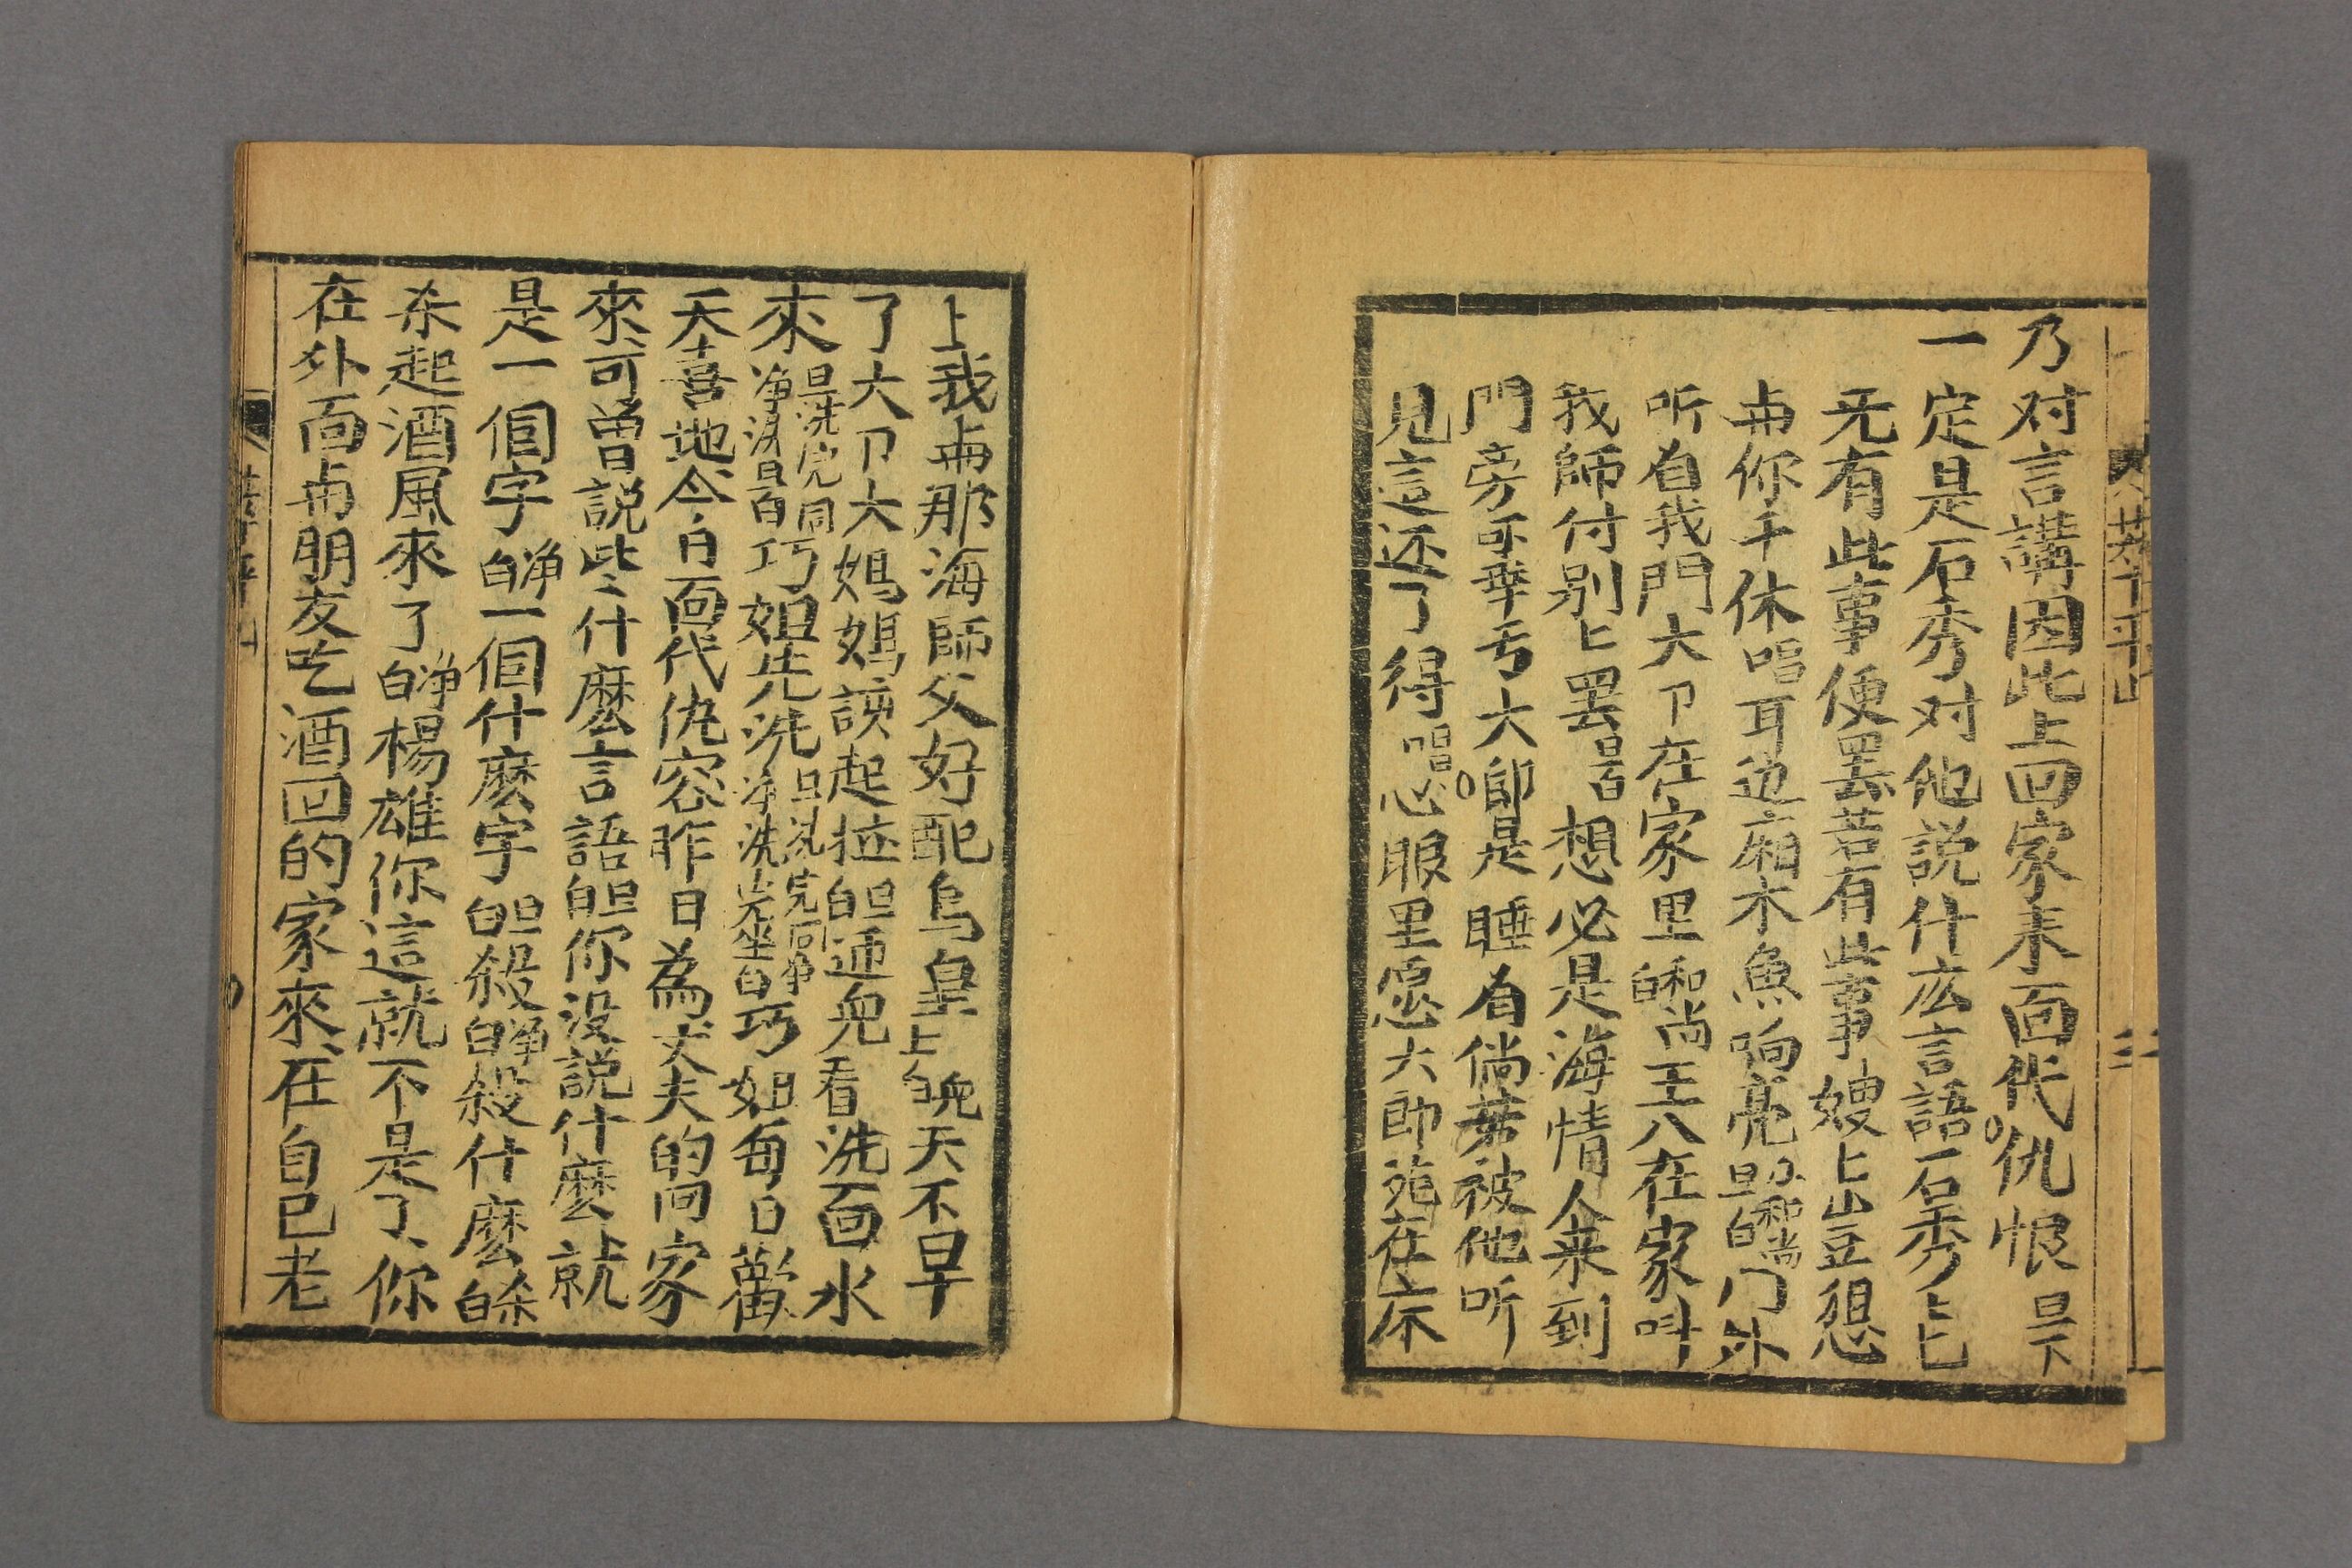 乃对言講因此上回家来面代仇恨旦下
一定是石秀对他説什広言語石秀上
无有此事便罢若有此事嫂上山豆想
你千休唱耳边廂木魚响亮旦白小和尚门外
听自我門大卩在家里和尚白王八在家叫
我師付别匕罢旦白想必是海情人来到
門旁可幸亏大郎是睡着倘若被他听
見這还了得唱心眼里愿大郎死在床
上我那海師父好配鳥皇上白兜天不早
了大卩大媽媽該起拉旦白迎兜看洗面水
來旦洗完同净洗旦白巧姐先洗旦洗完同净净洗完坐白巧姐每日歡
天喜地今日面代仇容昨日為丈夫的回家
來可曾説些什麽言語旦白你没説什麽就
是一個字净白一個什麽字旦白殺净白殺什麽白
杀起酒風來了净白楊雄你這就不是了你
在外面朋友吃酒回的家來在自己老